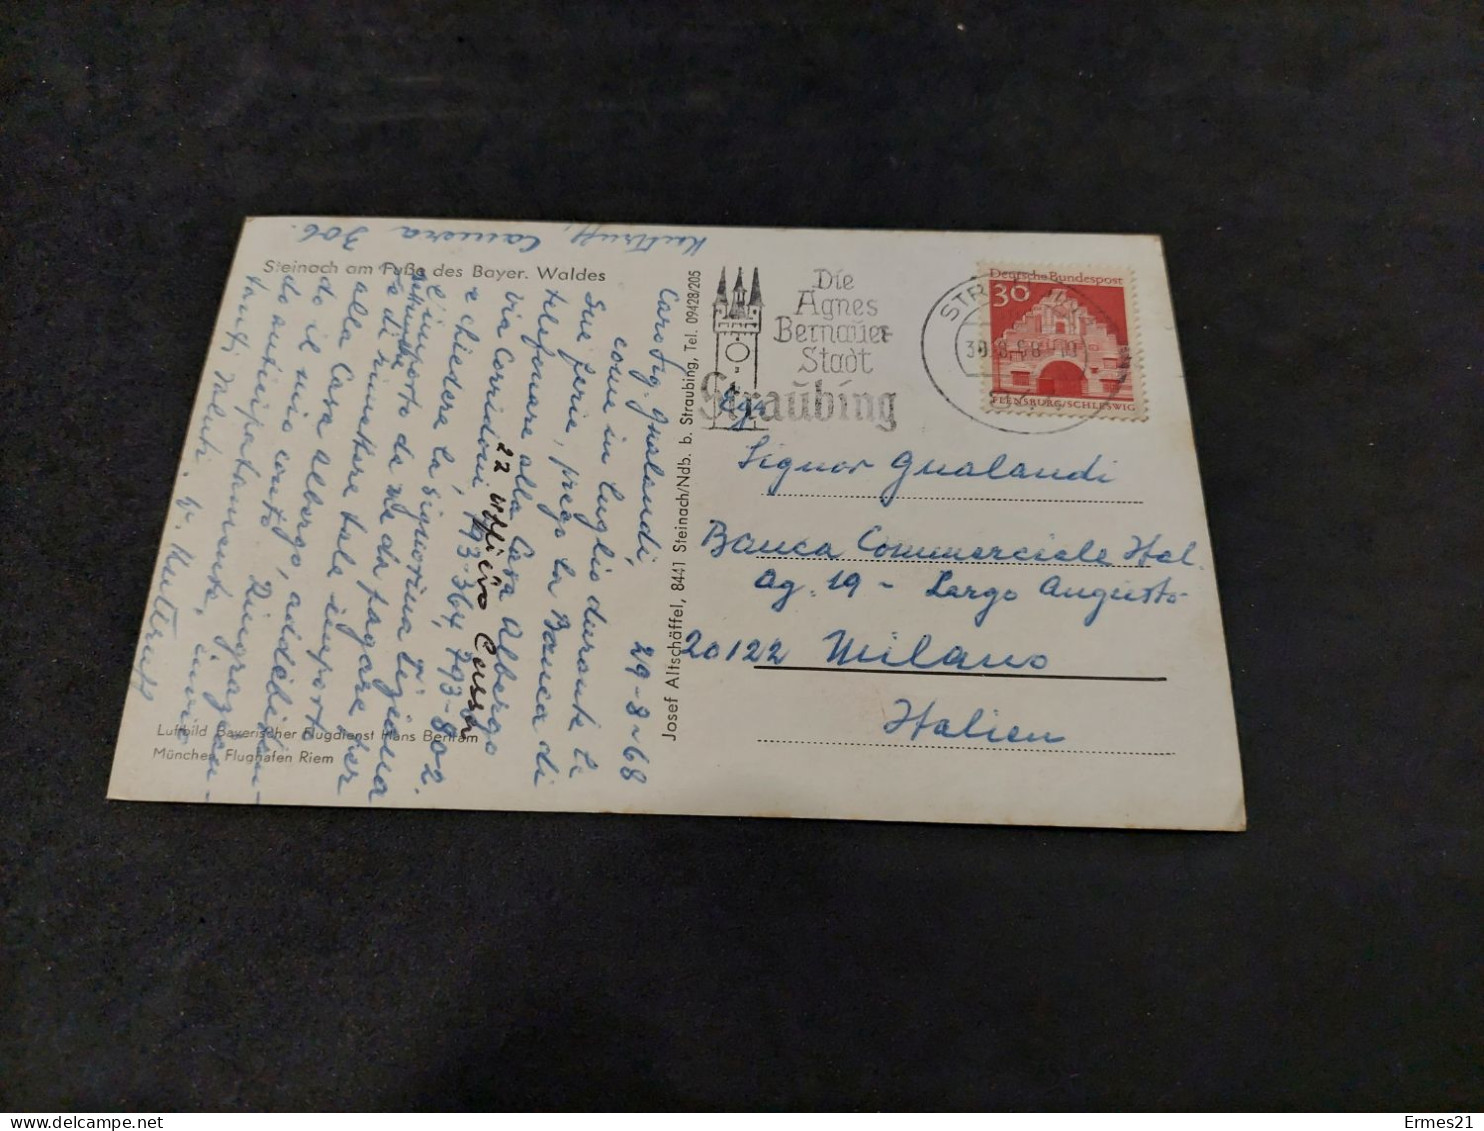 Steinach am Fuße des Bayer. Waldes
Kuttruff, Camera 306.
29-8-68
Caro Sig. Gualandi,
come in luglio durante le
Sue ferie, prego la Banca di
telefonare alla Casa Albergo
via Corridoni 22
793-364, 793-802.
e chiedere la signorina Tigiana
l'importo da me da pagare per
settembre
e di rimettere tale importo
alla Casa albergo, addebitan-
do il mio conto. Ringrazian-
do anticipatamente, invio
tanti saluti. V. Kuttruff
Luftbild Bayerischer Flugdienst Hans Bertram
München Flughafen Riem
Josef Altschäffel, 8441 Steinach/Ndb. b. Straubing, Tel. 09428/205
Die
Agnes
Bernauer
Stadt
Straubing
30.8.68
Deutsche Bundespost
30
FLENSBURG/SCHLESWIG
Signor Gualandi
Banca Commerciale Ital.
Ag. 19 - Largo Augusto
20122 Milano
Italien
Ermes21